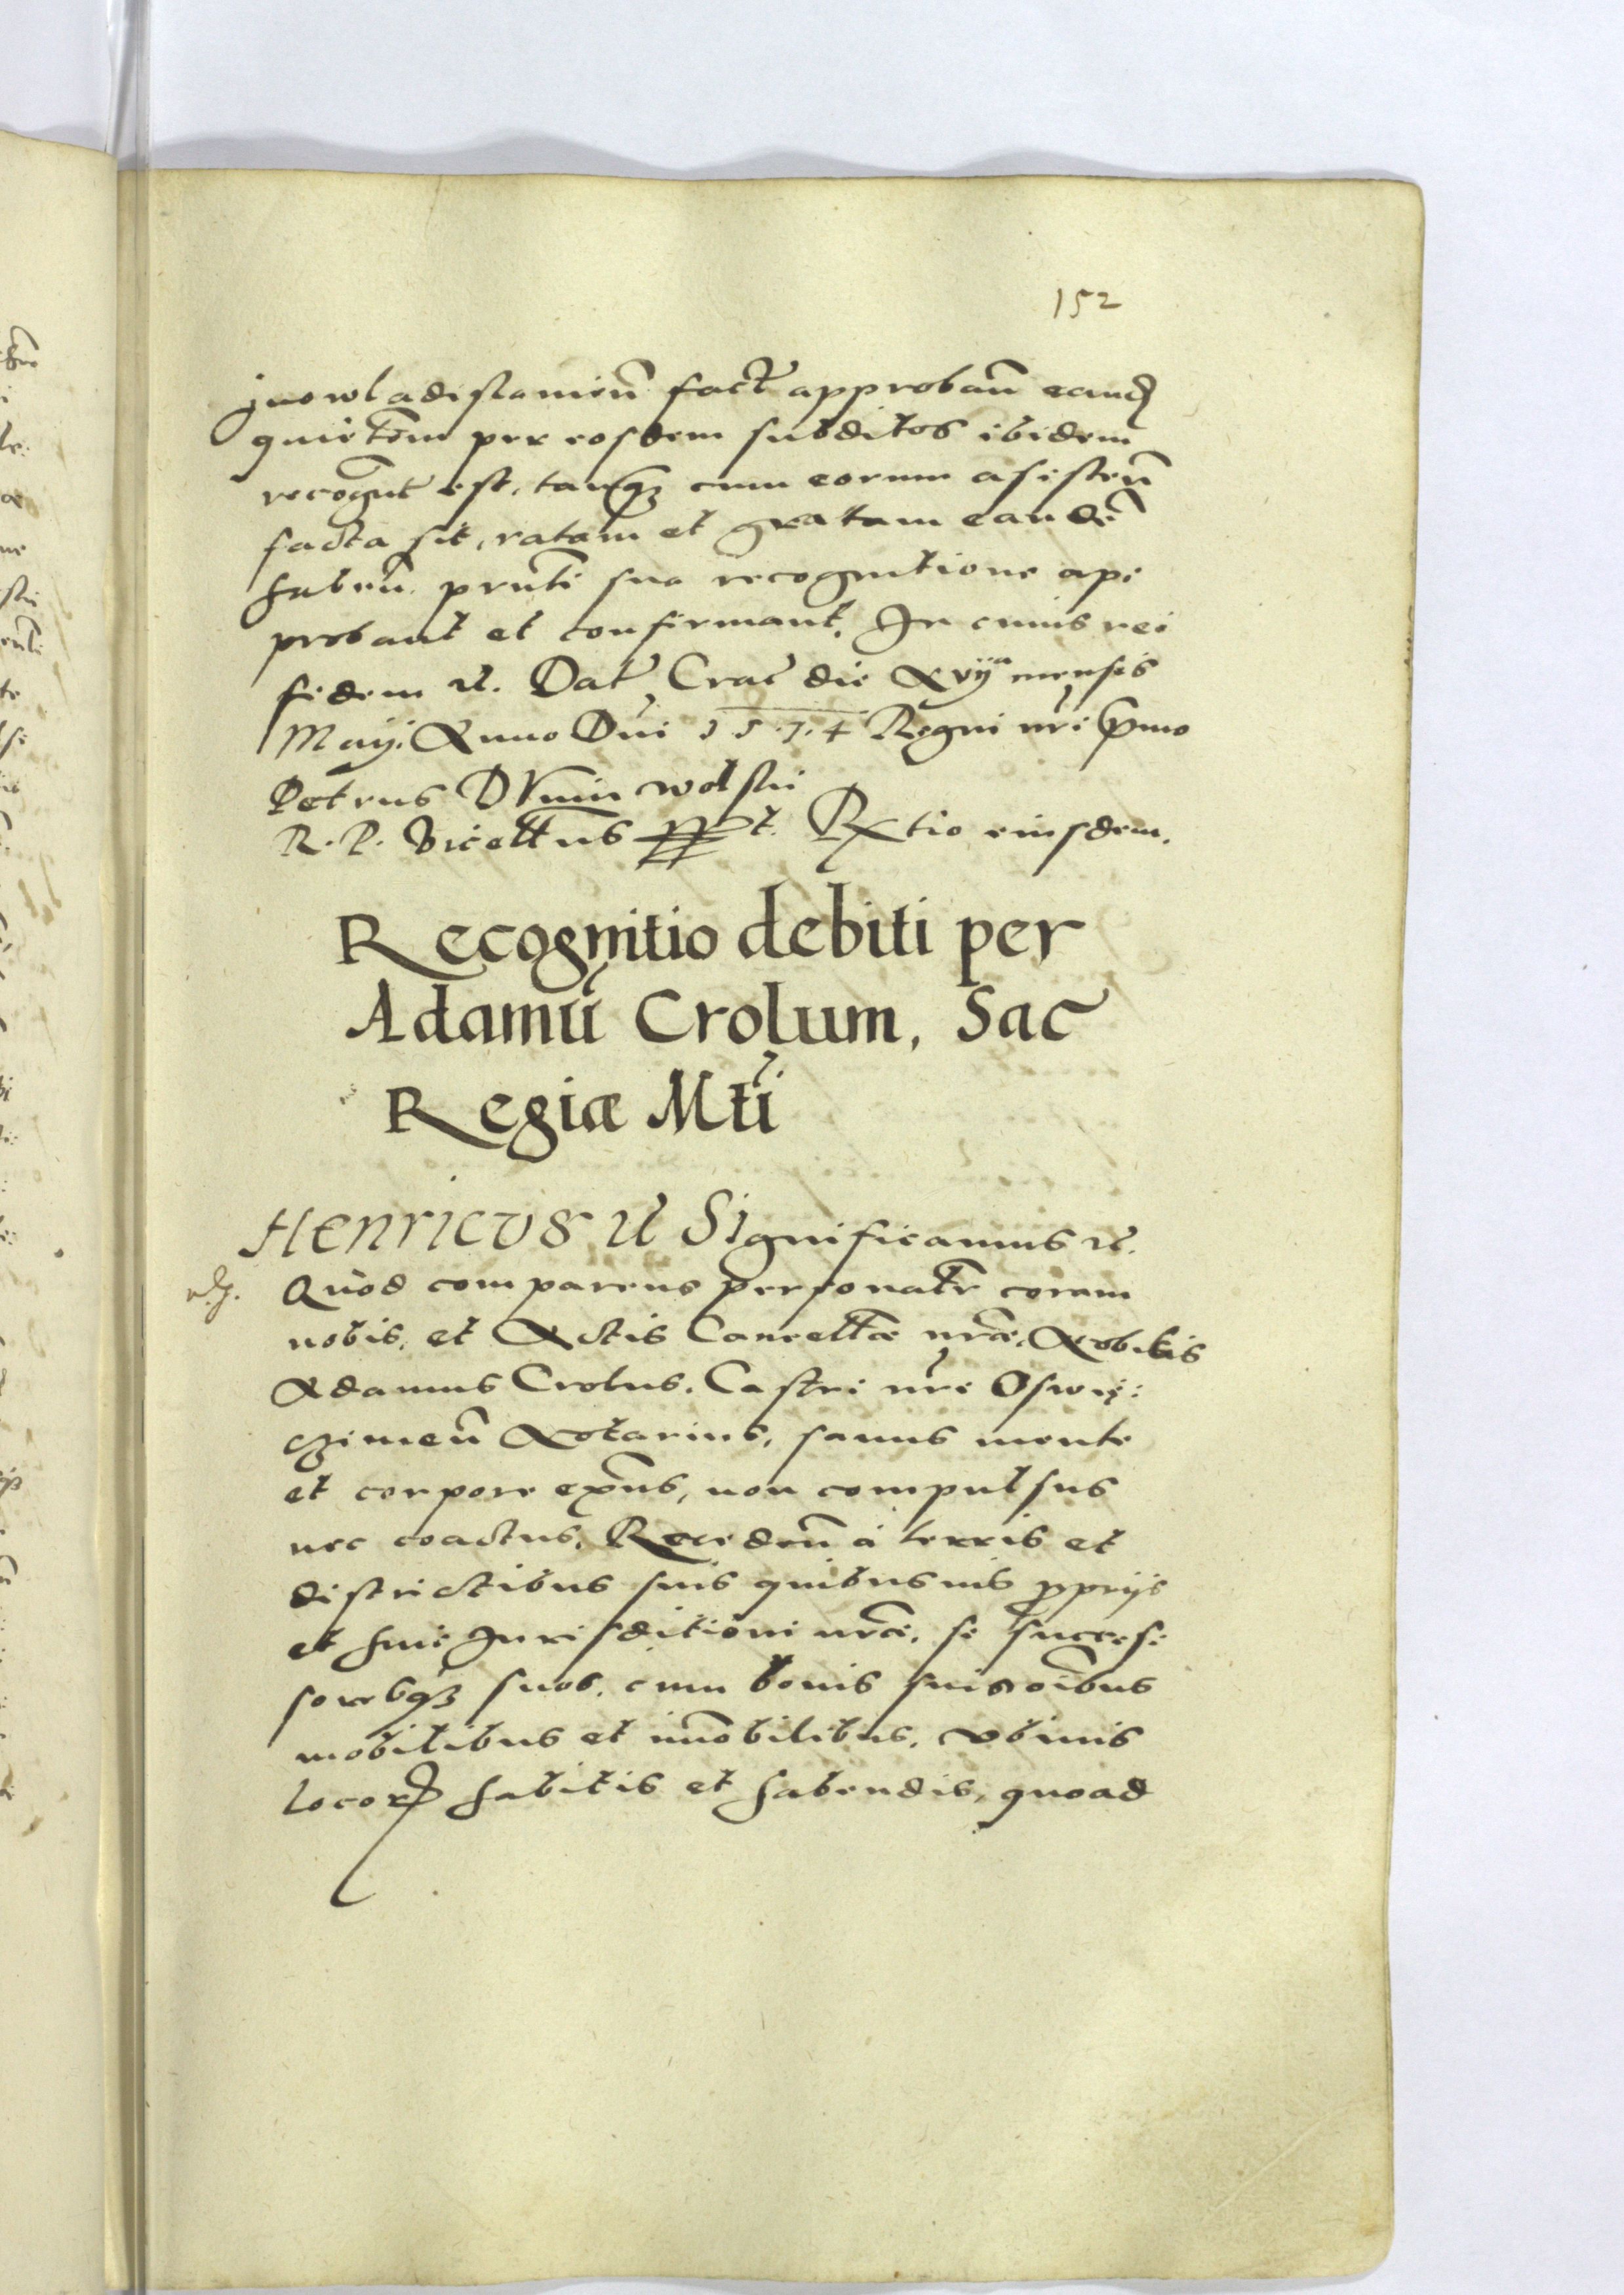 152
juowladislamien̄ fact̄ approban̄ eand̄
quiet̄om̄ per eosdem subditos ibidem
recogn̄t est, tanq̄ʒ cum eorum asisten̄
facta sit, ratam et gratam eandē
haben̄ prn̄ti sua recognitione ap:
probant et confirmant. In cuius rei
fidem etc. Dat̄ Crac̄ die Xvijᵃ mensis
Maij. Anno Dn̄i 1574 Regni nr̄i p̄mo
Petrus DVnin wolski
R. P. Vicecell̄us sst. Rx̄tio eiusdem.
Recognitio debiti per
Adamū Crolum, Sac̄
Regiæ Mti
Henricus etc Significamus etc.
Quod comparens personalr̄ coram
nobis, et Actis Cancell̄æ nrǣ, Nobilis
Adamus Crolus, Castri nr̄i Oswię:
czimen̄ Notarius, sanus mente
et corpore exn̄s, non compulsus
nec coactus, Receden̄ à terris et
districtibus suis quibusuis pprijs
et huic Jurisditioni nrǣ, se succes:
soresqʒ suos, cum bonis suis oībus
mobilibus et im̄obilibus, vbiuis
locorꝝ habitis et habendis, quoad